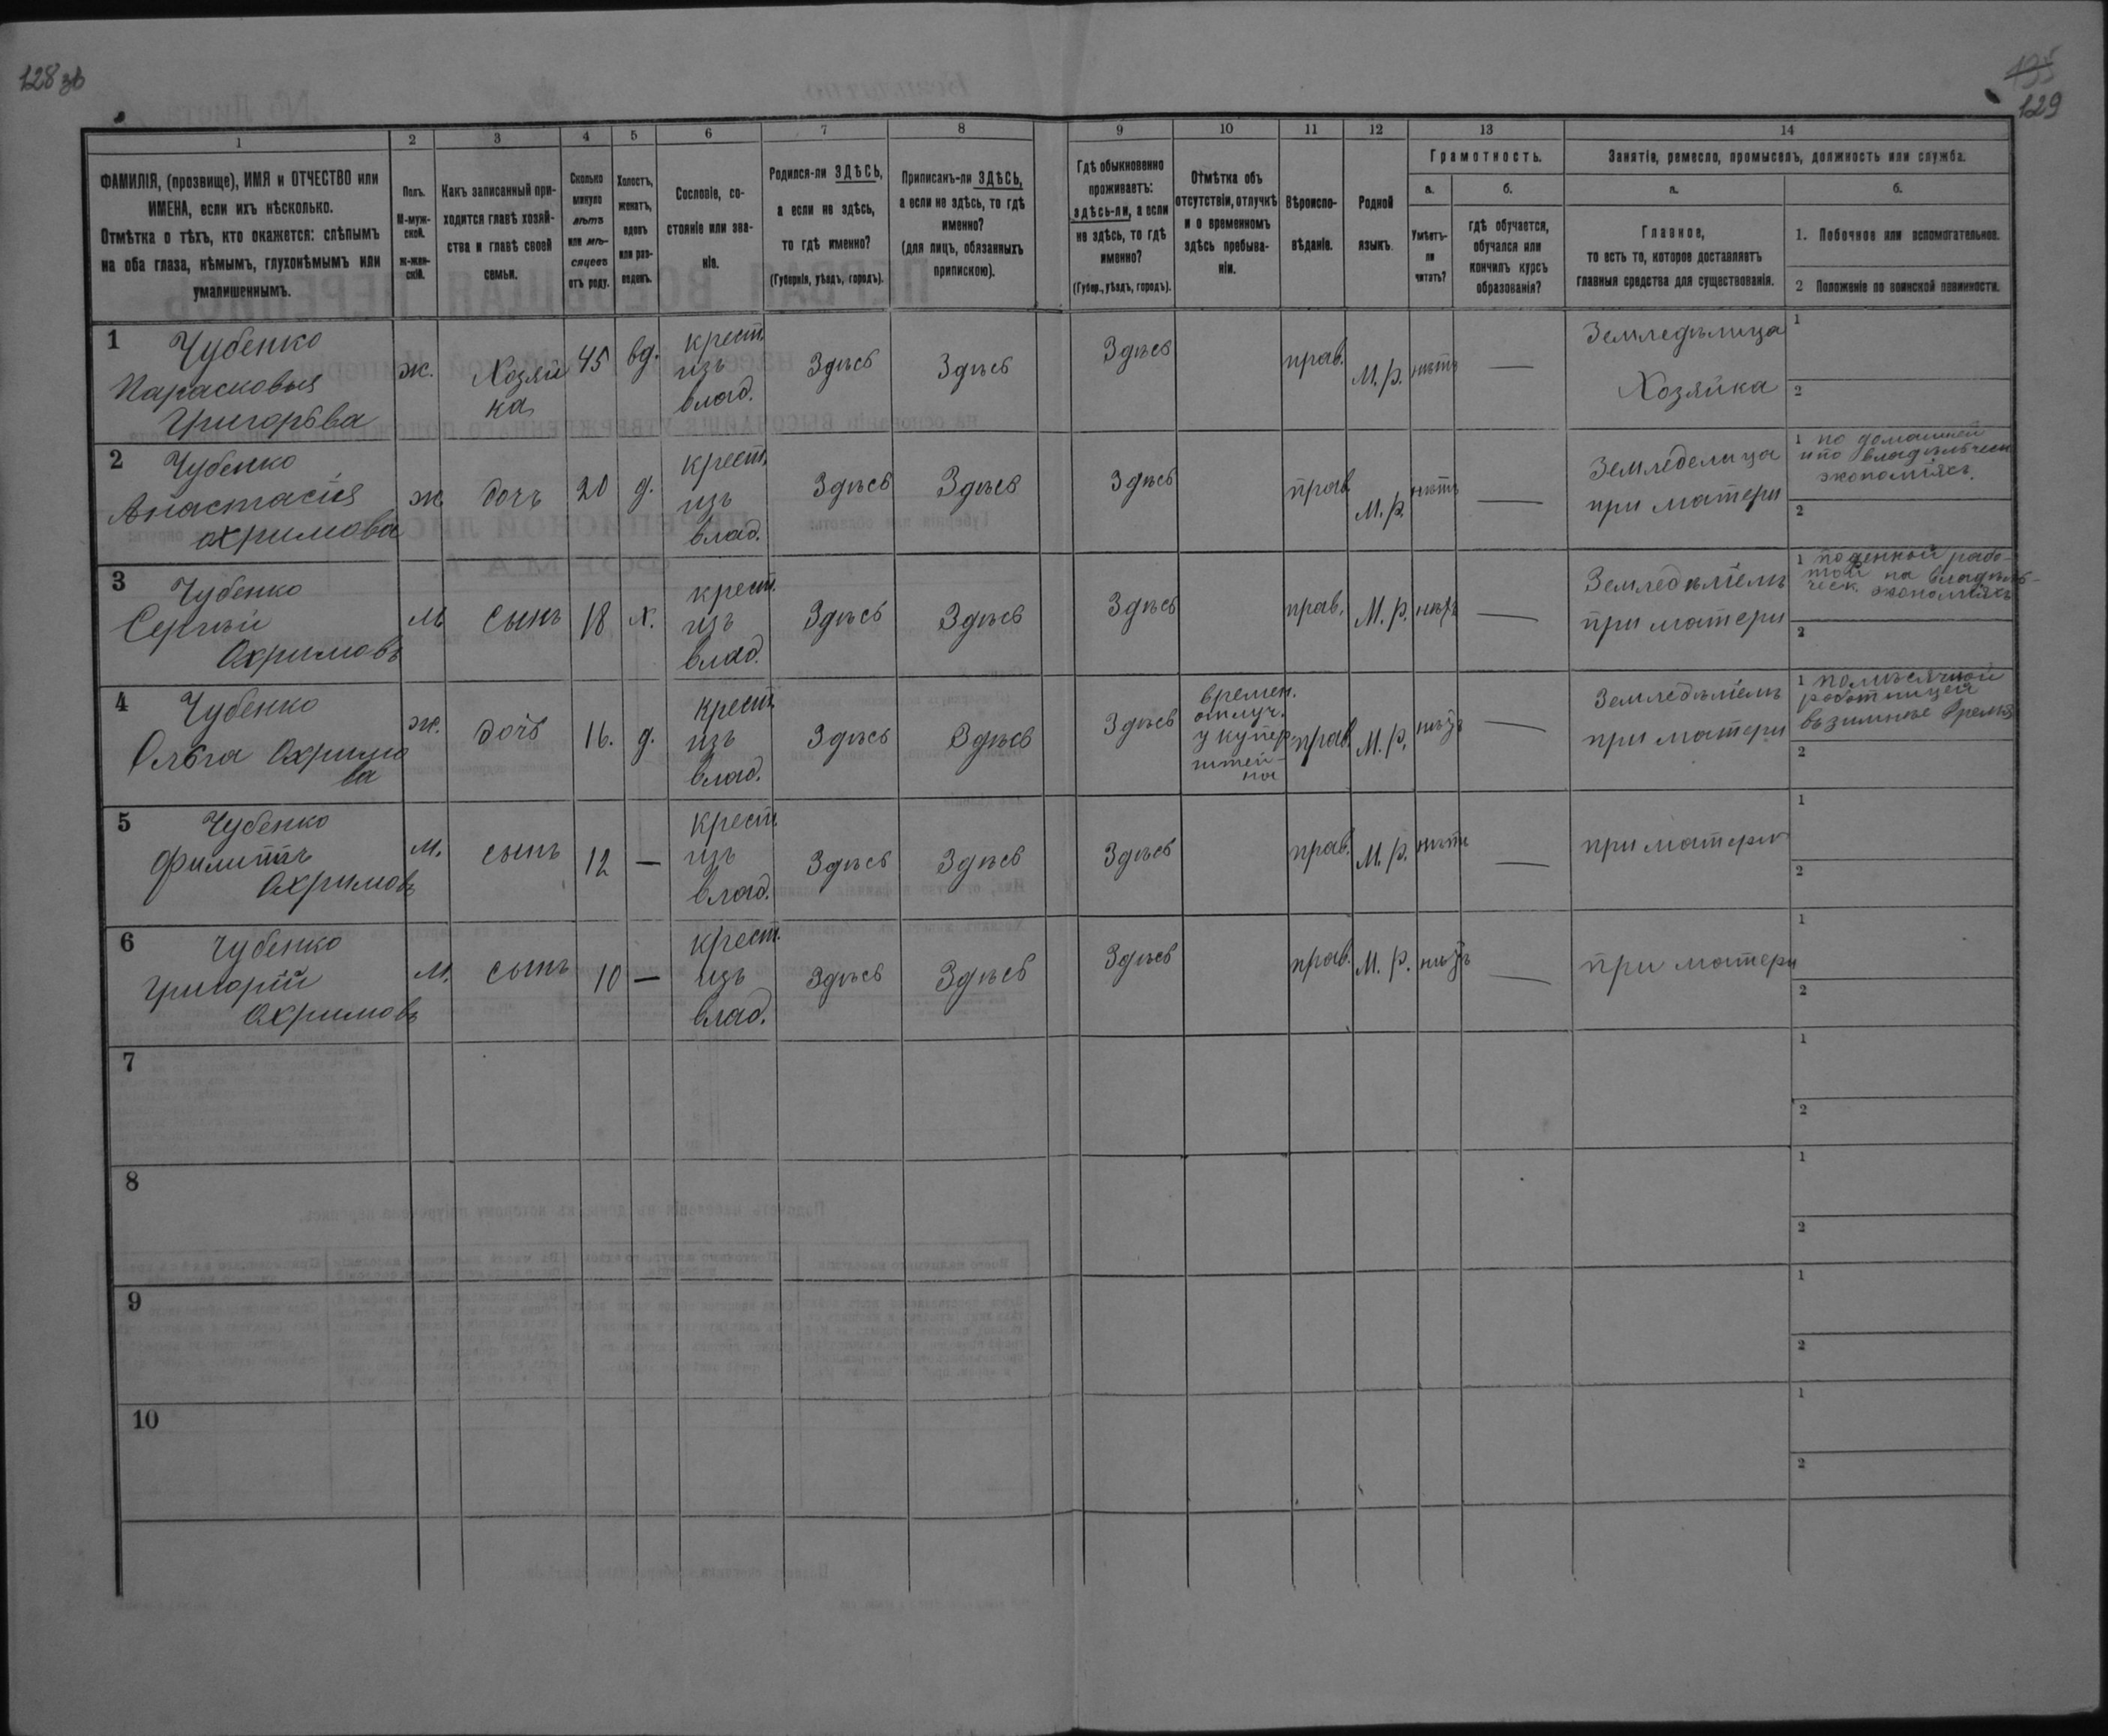 128 зв
135
129
1
2
3
4
5
6
7
8
9
10
11
12
13
14
ФАМИЛІЯ, (прозвище), ИМЯ и ОТЧЕСТВО или
ИМЕНА, если ихъ нѣсколько.
Отмѣтка о тѣхъ, кто окажется: слѣпымъ
на оба глаза, нѣмымъ, глухонѣмымъ или
умалишеннымъ.
Полъ.
М-муж-
ской.
Ж-жен-
скій.
Какъ записанный при-
ходится главѣ хозяй-
ства и главѣ своей
семьи.
Сколько
минуло
лѣтъ
или мѣ-
сяцевъ
отъ роду.
Холостъ,
женатъ,
вдовъ
или раз-
веденъ.
Сословіе, со-
стояніе или зва-
ніе.
Родился-ли ЗДѢСЬ,
а если не здѣсь,
то гдѣ именно?
(Губернія, уѣздъ, городъ).
Приписанъ-ли ЗДѢСЬ,
а если не здѣсь, то гдѣ
именно?
(для лицъ, обязанныхъ
припискою).
Гдѣ обыкновенно
проживаетъ:
здѣсь-ли, а если
не здѣсь, то гдѣ
именно?
(Губер., уѣздъ, городъ).
Отмѣтка объ
отсутствіи, отлучкѣ
и о временномъ
здѣсь пребыва-
ніи.
Вѣроиспо-
вѣданіе.
Родной
языкъ.
Грамотность.
а.
Умѣетъ-
ли
читать?
б.
гдѣ обучается,
обучался или
кончилъ курсъ
образованія?
Занятіе, ремесло, промыселъ, должность или служба.
а.
Главное,
то есть то, которое доставляетъ
главныя средства для существованія.
б.
1. Побочное или вспомогательное.
2 Положеніе по воинской повинности.
1 Чубенко
Парасковья
Григорьва
ж.
Хозяй
ка
45
вд.
крест.
изъ
влад.
Здѣсь
Здѣсь
Здѣсь
прав.
М. р.
нѣтъ
—
Земледѣлица
Хозяйка
1
2
2 Чубенко
Анастасія
Охримова
ж
дочъ
20
д.
крест.
изъ
влад.
Здѣсь
Здѣсь
Здѣсь
прав.
М. р.
нѣтъ
—
Земледелица
при матери
1 по домашней
и по владѣльческ
экономіяхъ.
2
3 Чубенко
Сергѣй
Охримовъ
М
сынъ
18
х.
крест.
изъ
влад.
Здѣсь
Здѣсь
Здѣсь
прав.
М. р.
нѣтъ
—
Земледѣлецъ
при матери
1 поденной рабо-
той на владѣль-
ческ. экономіяхъ
2
4 Чубенко
Ольга Охримо
ва
ж.
дочь
16.
д.
крест.
изъ
влад.
Здѣсь
Здѣсь
Здѣсь
времен.
отлуч.
у купер-
штей-
на
прав.
М. р.
нѣтъ
—
Земледѣлецъ
при матери
1 помѣсячной
работницей
въ зимнѣе время
2
5 Чубенко
Филиппъ
Охримовъ
М.
сынъ
12
—
крест.
изъ
влад.
Здѣсь
Здѣсь
Здѣсь
прав.
М. р.
нѣтъ
—
при матери
1
2
6 Чубенко
Григорій
Охримовъ
М.
сынъ
10
—
крест.
изъ
влад.
Здѣсь
Здѣсь
Здѣсь
прав.
М. р.
нѣтъ
—
при матери
1
2
7
1
2
8
1
2
9
1
2
10
1
2